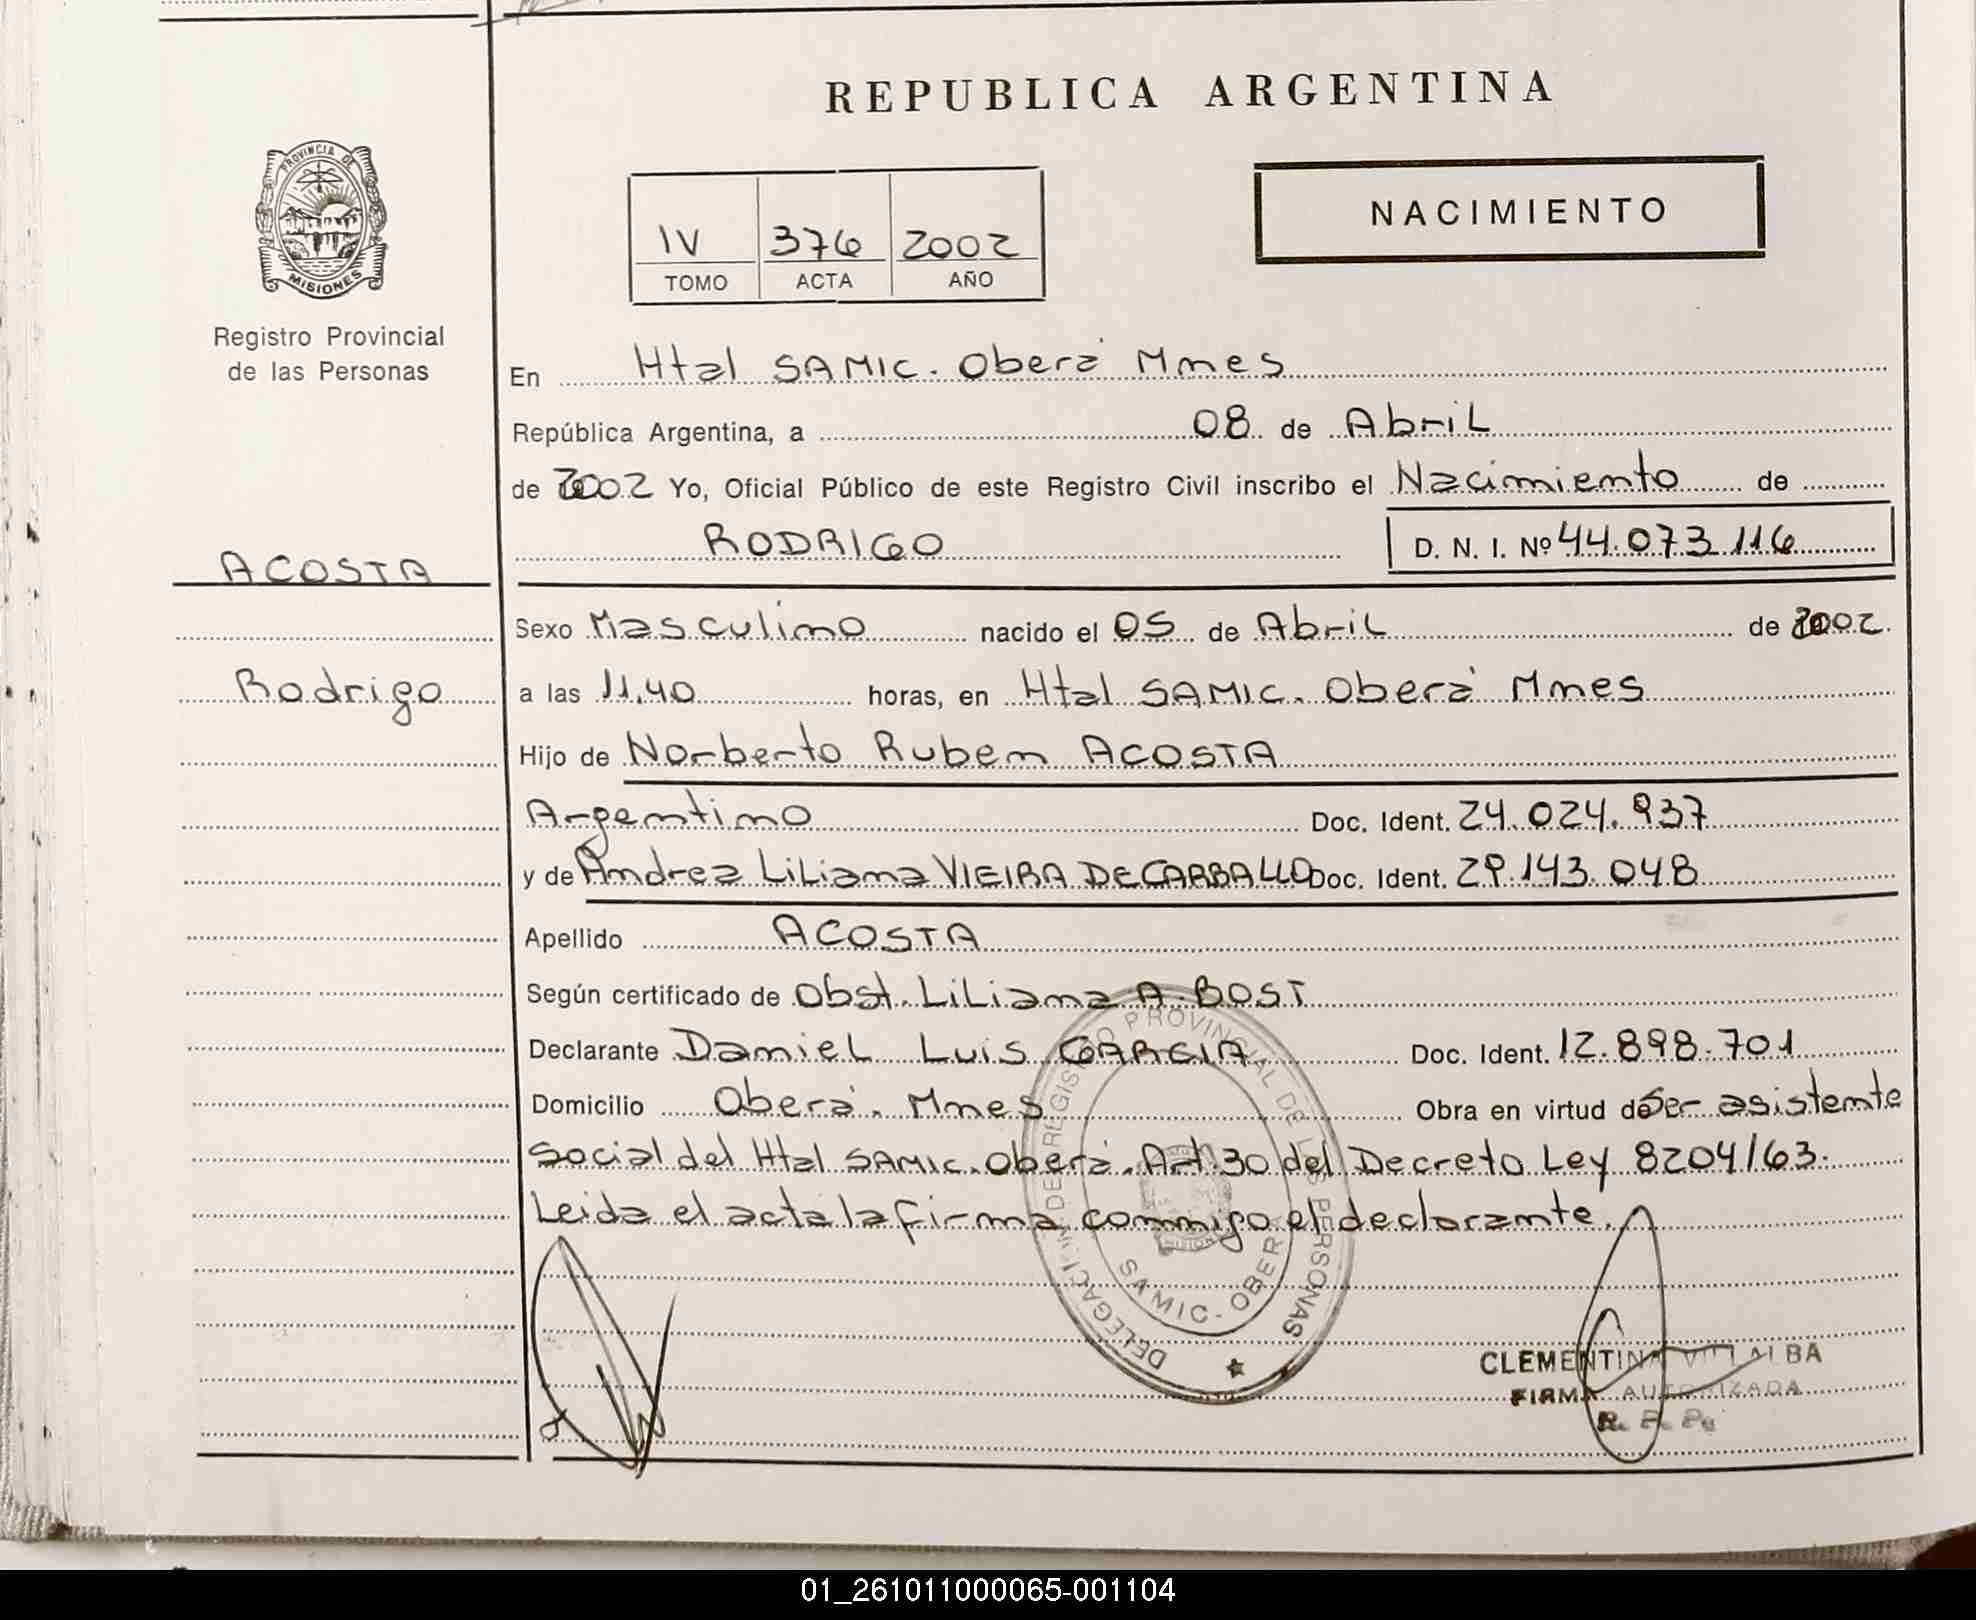 REPUBLICA ARGENTINA
PROVINCIA DE
MISIONES
Registro Provincial
de las Personas
NACIMIENTO
IV 376 2002
TOMO ACTA AÑO
En Htal SAMIC. Oberá Mnes
República Argentina, a 08 de Abril
de 2002 Yo, Oficial Público de este Registro Civil inscribo el Nacimiento de
RODRIGO D. N. I. Nº 44.073.116
ACOSTA
Sexo Masculino nacido el 05 de Abril de 2002
Rodrigo
a las 11.40 horas, en Htal SAMIC. Oberá Mnes
Hijo de Norberto Ruben ACOSTA
Argentino Doc. Ident. 24.024.937
y de Andrea Liliana VIEIRA DE CARBALLO Doc. Ident. 29.143.048
Apellido ACOSTA
Según certificado de Obst. Liliana A. BOST
Declarante Daniel Luis GARCIA Doc. Ident. 12.898.701
Domicilio Oberá. Mnes Obra en virtud de Ser asistente
Social del Htal SAMIC. Oberá. Art. 30 del Decreto Ley 8204/63.
Leida el acta la firma conmigo el declarante.
DELEGACION DE REGISTRO PROVINCIAL DE LAS PERSONAS
SAMIC - OBERA
CLEMENTINA VILLALBA
FIRMA AUTORIZADA
R. P. Ps
01_261011000065-001104